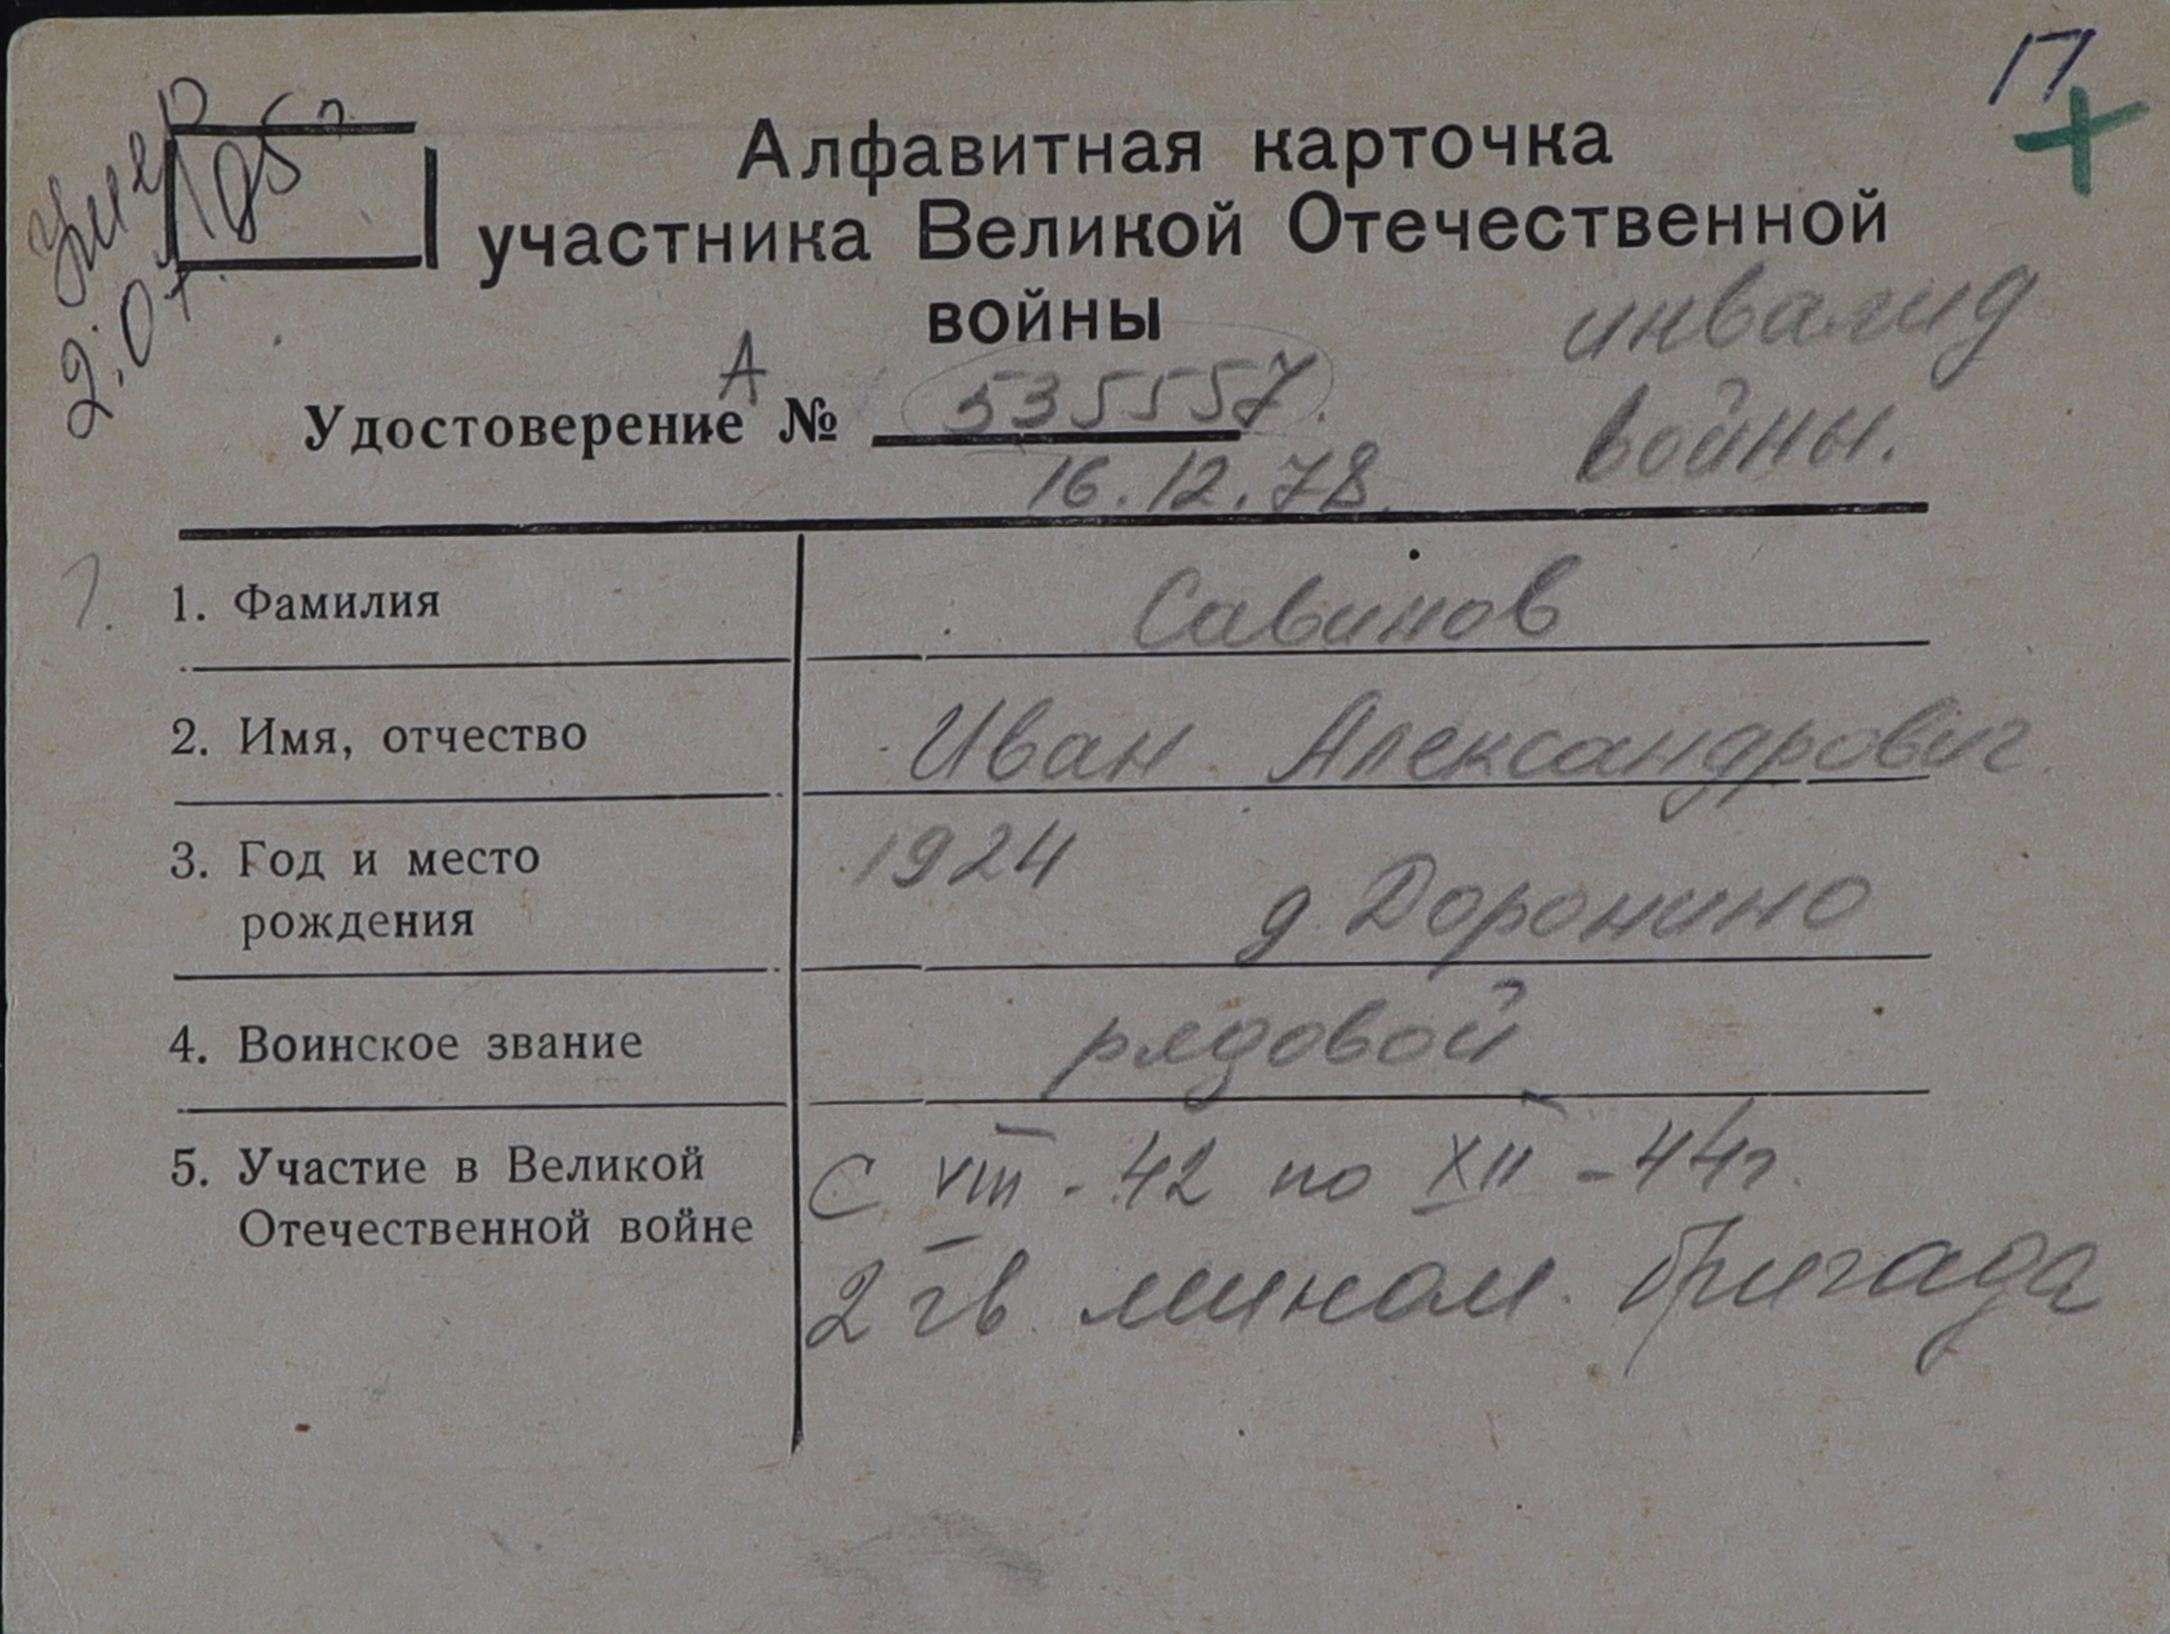 П
Умер
2.07.85 г
Алфавитная карточка
участника Великой Отечественной
войны
инвалид
войны.
А
Удостоверение № 535557.
16.12.78.
1. Фамилия Савинов
2. Имя, отчество Иван Александрович
3. Год и место 1924
рождения д. Доронино
4. Воинское звание рядовой
5. Участие в Великой С VIII - 42 по XII - 44г.
Отечественной войне 2 гв. мином. бригада